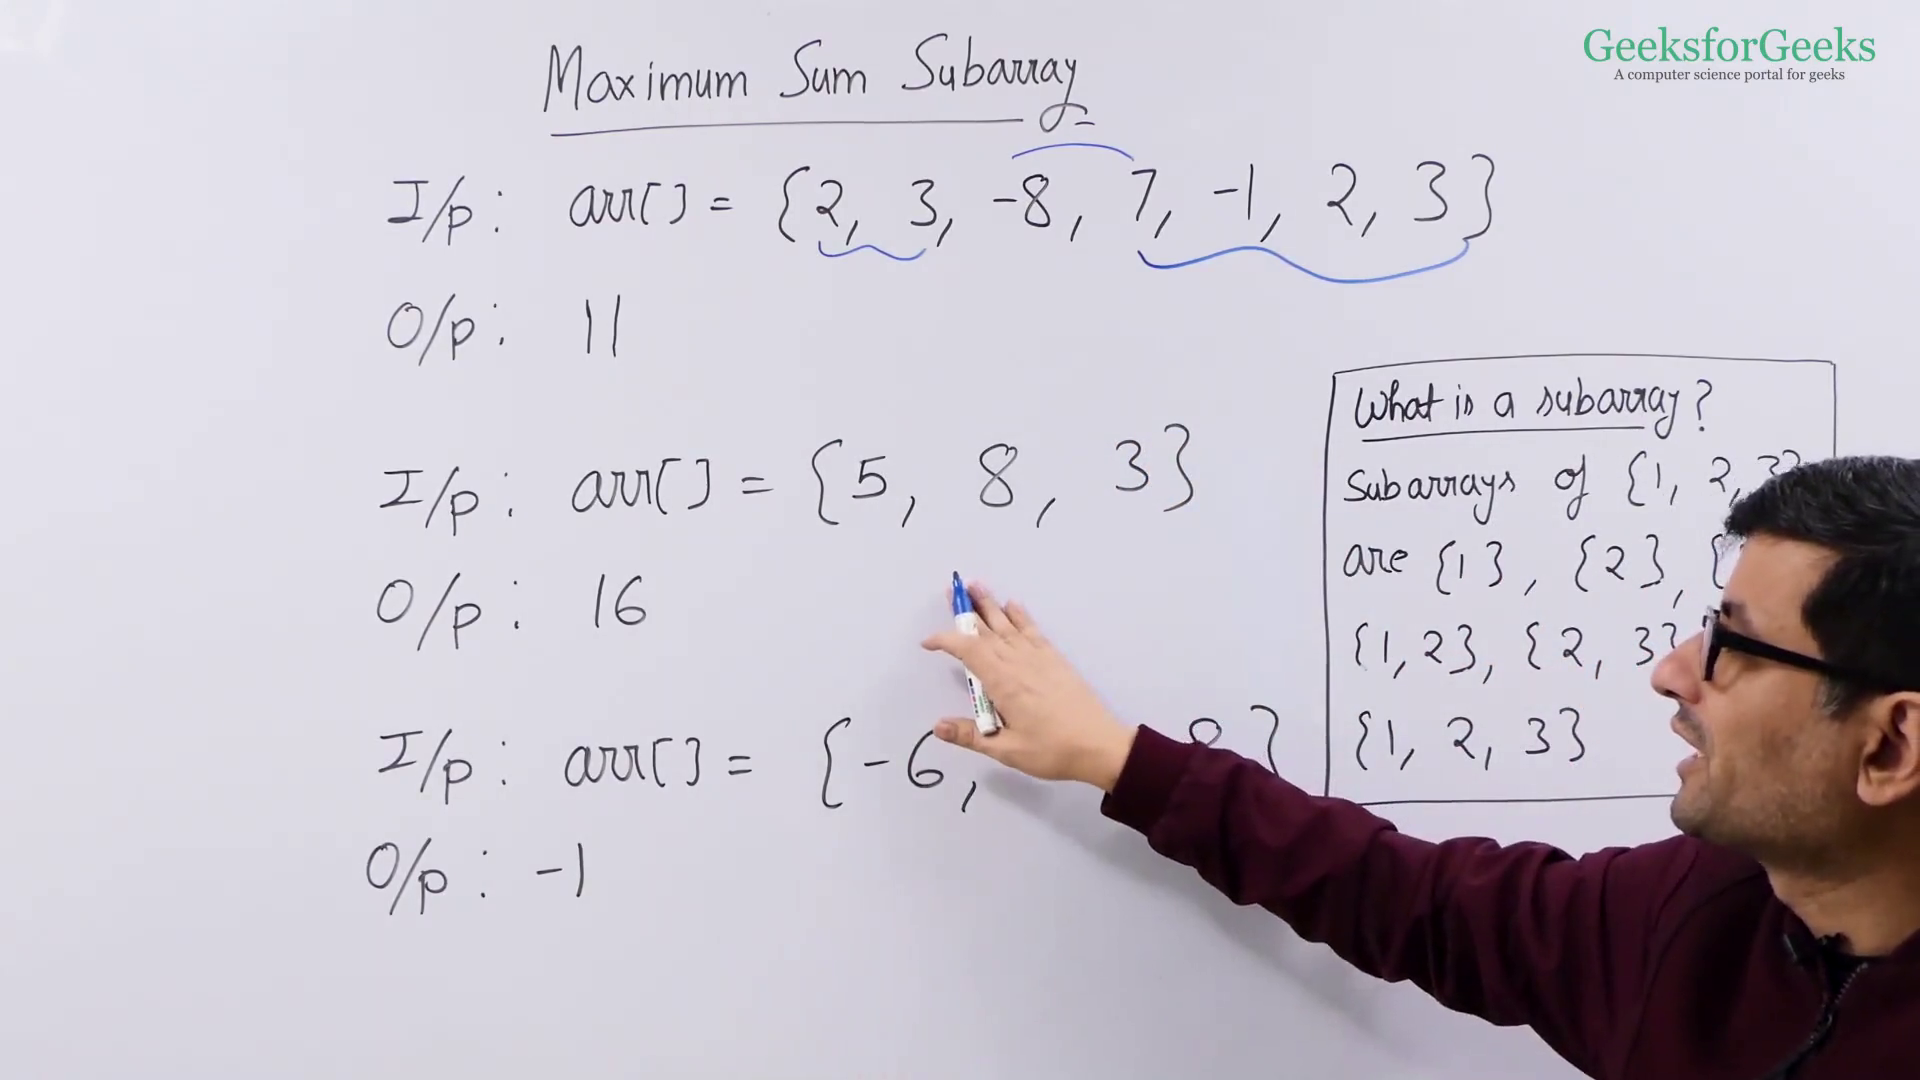 GeeksforGeeks
A computer science portal for geeks
Maximum Sum Subarray
I/p: arr[] = {2, 3, -8, 7, -1, 2, 3}
O/p: 11
I/p: arr[] = {5, 8, 3}
O/p: 16
I/p: arr[] = {-6, 8}
O/p: -1
What is a subarray?
Subarrays of {1, 2, 3}
are {1}, {2}, {
{1,2}, {2, 3}
{1, 2, 3}